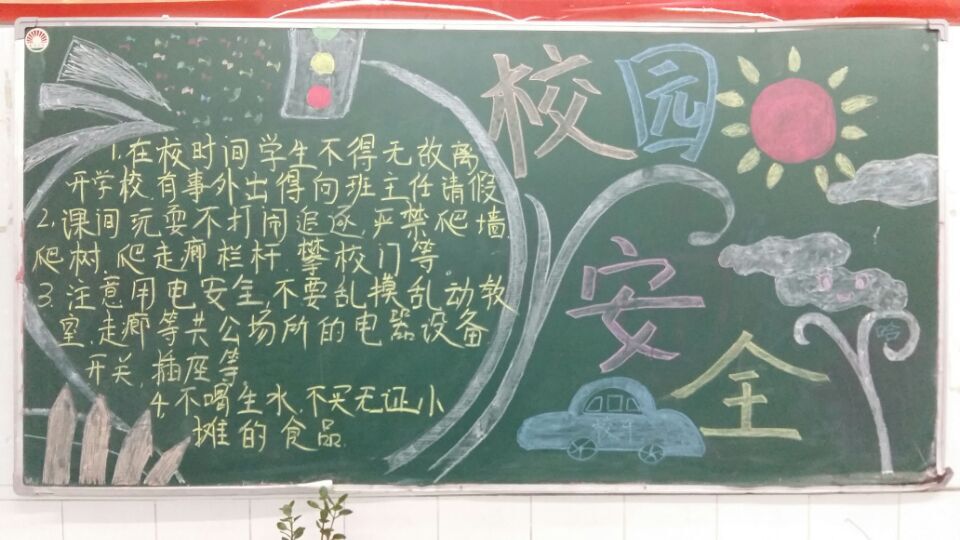 校园
安
全
1.在校时间学生不得无故离
开学校.有事外出得向班主任请假
2.课间玩耍不打闹追逐.严禁爬墙.
爬树.爬走廊栏杆.攀校门等。
3.注意用电安全,不要乱摸乱动教
室.走廊等共公场所的电器设备
开关.插座等.
4.不喝生水.不买无证小
摊的食品.